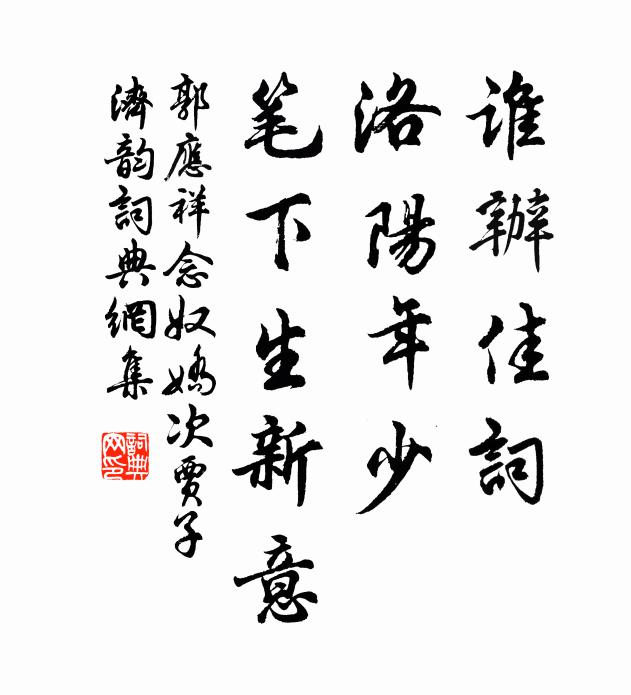 谁辦佳詞
洛陽年少
笔下生新意
郭應祥念奴嬌次賈子
濟韵詞典網集
詞典
网印